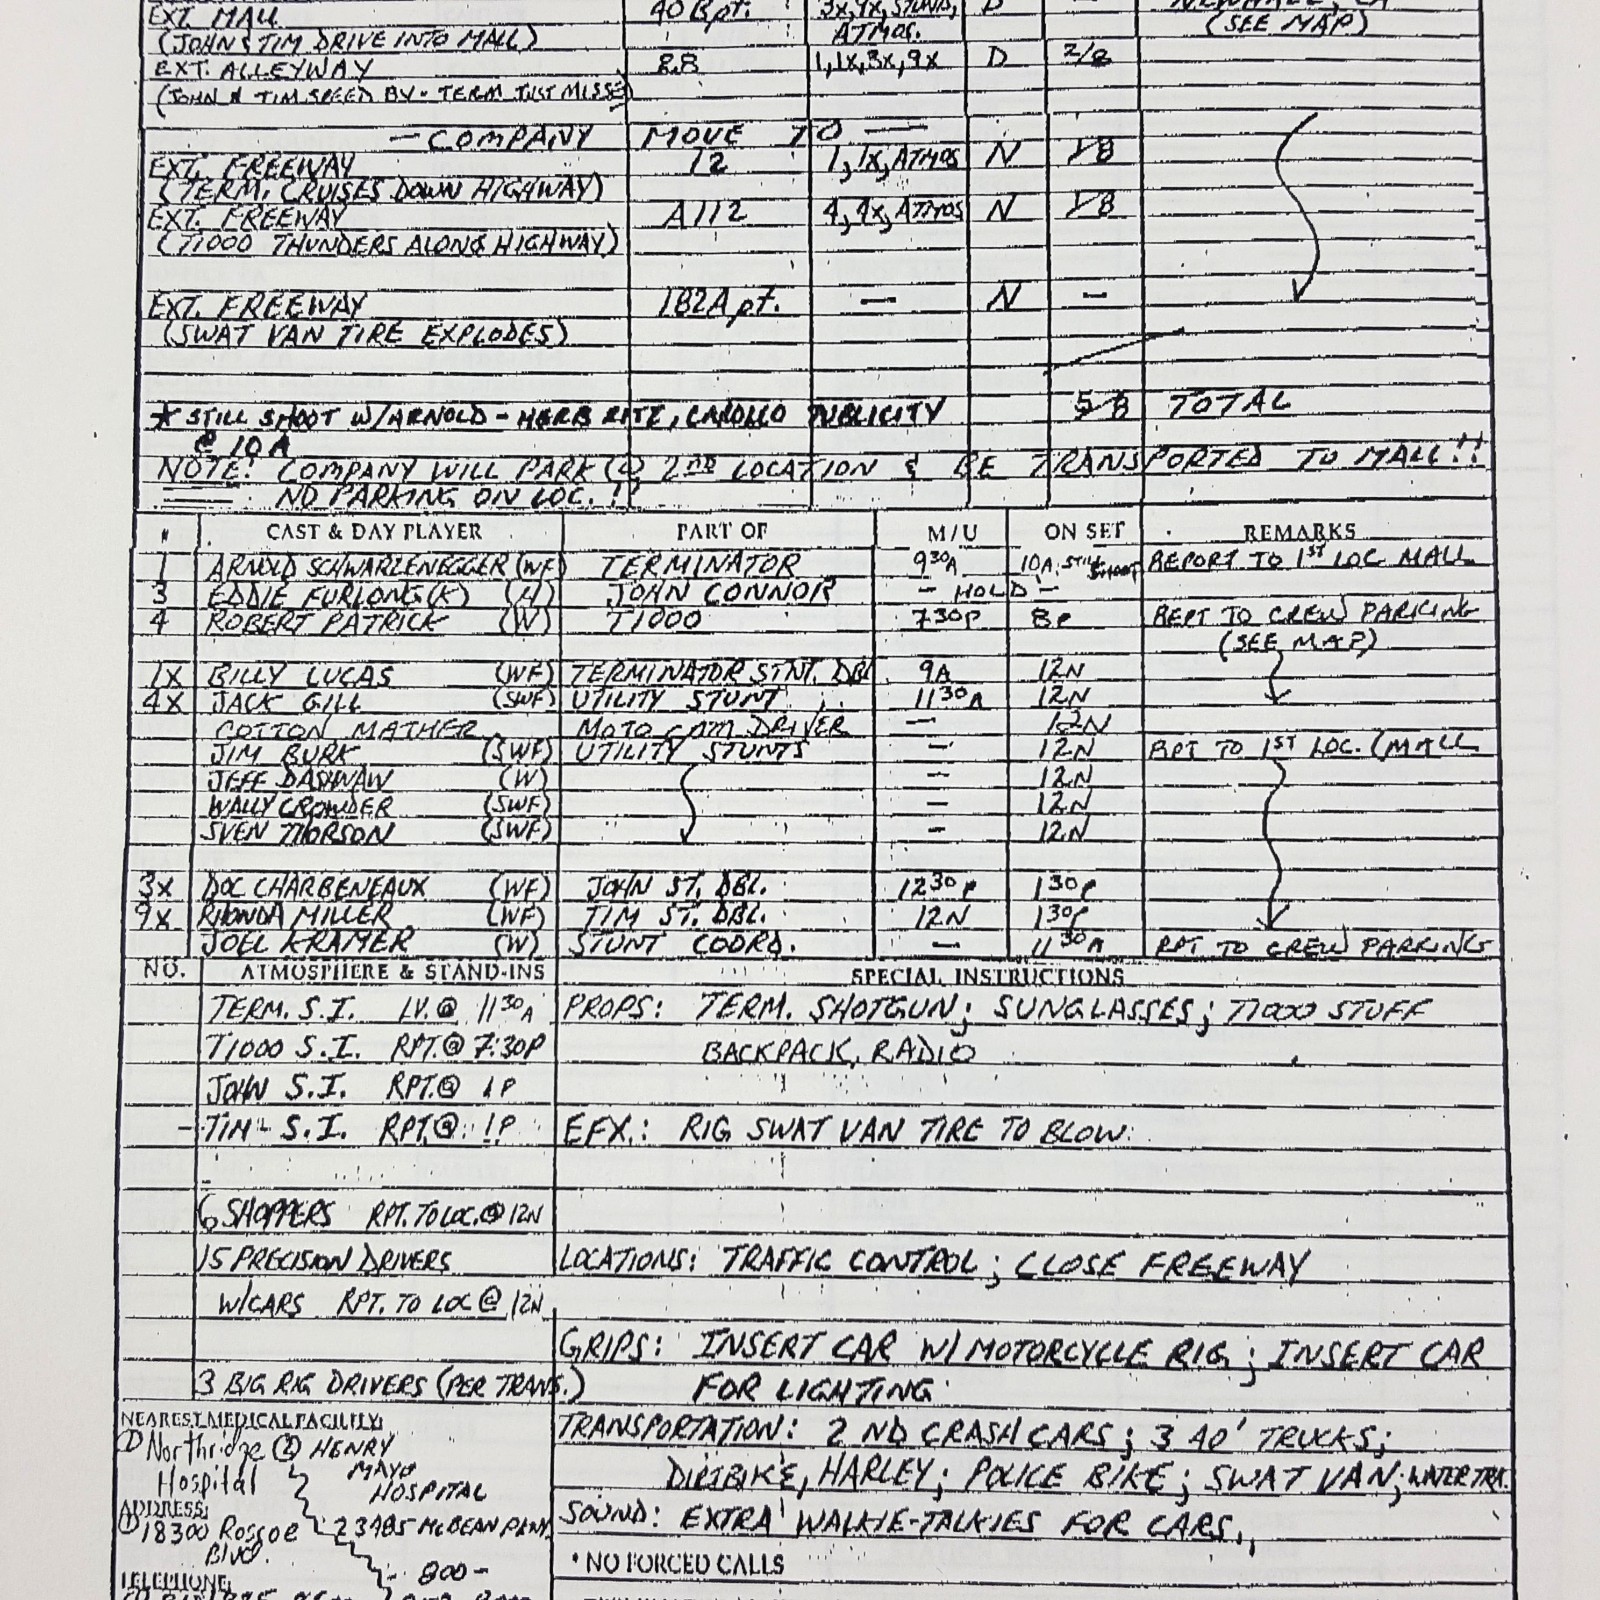 EXT. MALL 40 Bpt. 3x, 4x, STUNTS, D — NEWHALL, CA
(JOHN & TIM DRIVE INTO MALL) ATMOS. (SEE MAP)
EXT. ALLEYWAY 88 1, 1x, 3x, 9x D 2/8
(JOHN & TIM SPEED BY - TERM JUST MISSES)
— COMPANY MOVE TO —
EXT. FREEWAY 12 1, 1x, ATMOS N 1/8
(TERM. CRUISES DOWN HIGHWAY)
EXT. FREEWAY A112 4, 4x, ATMOS N 1/8
(T1000 THUNDERS ALONG HIGHWAY)
EXT. FREEWAY 182A pt. — N —
(SWAT VAN TIRE EXPLODES)
* STILL SHOOT W/ARNOLD - HERB RITZ, PUBLICITY 5/8 TOTAL
@ 10A
NOTE! COMPANY WILL PARK @ 2ND LOCATION & BE TRANSPORTED TO MALL!!
NO PARKING ON LOC.!!
# CAST & DAY PLAYER PART OF M/U ON SET REMARKS
1 ARNOLD SCHWARZENEGGER (WF) TERMINATOR 930A 10A STILL SHOOT REPORT TO 1ST LOC MALL
3 EDDIE FURLONG (K) (H) JOHN CONNOR — HOLD —
4 ROBERT PATRICK (W) T1000 730P 8P REPT TO CREW PARKING
(SEE MAP)
1X BILLY LUCAS (WF) TERMINATOR STNT. DBL 9A 12N
4X JACK GILL (SWF) UTILITY STUNT 1130A 12N
COTTON MATHER MOTO CAM DRIVER — 12N
JIM BURK (SWF) UTILITY STUNTS — 12N RPT TO 1ST LOC. (MALL
JEFF DASHNAW (W) — 12N
WALLY CROWDER (SWF) — 12N
SVEN THORSON (SWF) — 12N
3x DOC CHARBENEAUX (WF) JOHN ST. DBL. 1230P 130P
9x RHONDA MILLER (WF) TIM ST. DBL. 12N 130P
JOEL KRAMER (W) STUNT COORD. — 1130A RPT TO CREW PARKING
NO. ATMOSPHERE & STAND-INS SPECIAL INSTRUCTIONS
TERM. S.I. LV. @ 1130A PROPS: TERM. SHOTGUN; SUNGLASSES; T1000 STUFF
T1000 S.I. RPT. @ 7:30P BACKPACK, RADIO
JOHN S.I. RPT. @ 1P
TIM S.I. RPT. @ 1P EFX.: RIG SWAT VAN TIRE TO BLOW.
6 SHOPPERS RPT. TO LOC. @ 12N
15 PRECISION DRIVERS LOCATIONS: TRAFFIC CONTROL; CLOSE FREEWAY
W/CARS RPT. TO LOC @ 12N
GRIPS: INSERT CAR W/ MOTORCYCLE RIG; INSERT CAR
3 BIG RIG DRIVERS (PER TRANS.) FOR LIGHTING
NEAREST MEDICAL FACILITY: TRANSPORTATION: 2 ND CRASH CARS; 3 40' TRUCKS;
① Northridge ② HENRY
Hospital MAYO HOSPITAL DIRTBIKE, HARLEY; POLICE BIKE; SWAT VAN; WATER TRK.
ADDRESS: SOUND: EXTRA WALKIE-TALKIES FOR CARS.
① 18300 Roscoe Blvd. 23785 McBEAN PKWY.
• NO FORCED CALLS
TELEPHONE: 800-